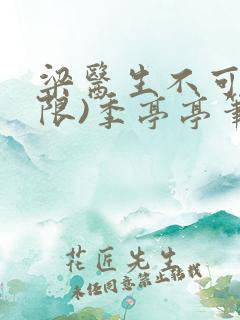 梁醫生不可
限)季亭亭
花匠先生
未经同意禁止转载